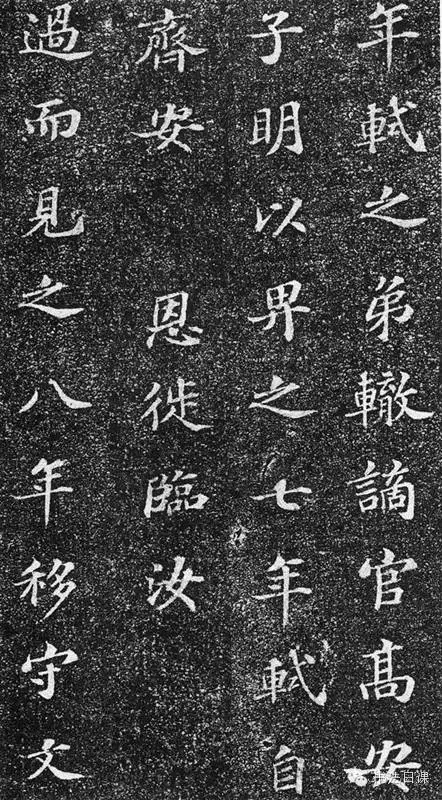 年軾之弟轍謫官髙安
子明以畀之七年軾自
齊安 恩徙臨汝
過而見之八年移守文
书法自课